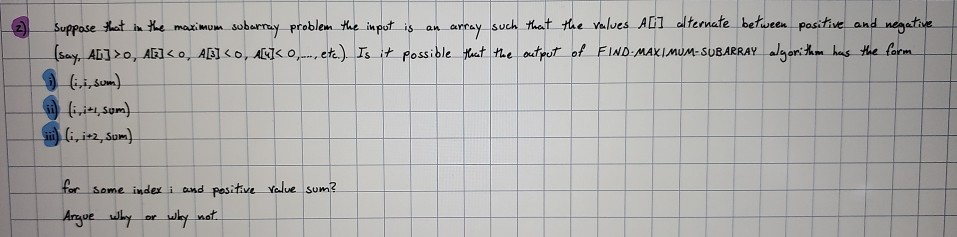 2) Suppose that in the maximum subarray problem the input is an array such that the values A[i] alternate between positive and negative
(say, A[1]>0, A[2]<0, A[3]<0, A[4]<0,..., etc.) Is it possible that the output of FIND-MAXIMUM-SUBARRAY algorithm has the form
i) (i,i,sum)
ii) (i,i+1,sum)
iii) (i,i+2,sum)
for some index i and positive value sum?
Argue why or why not.